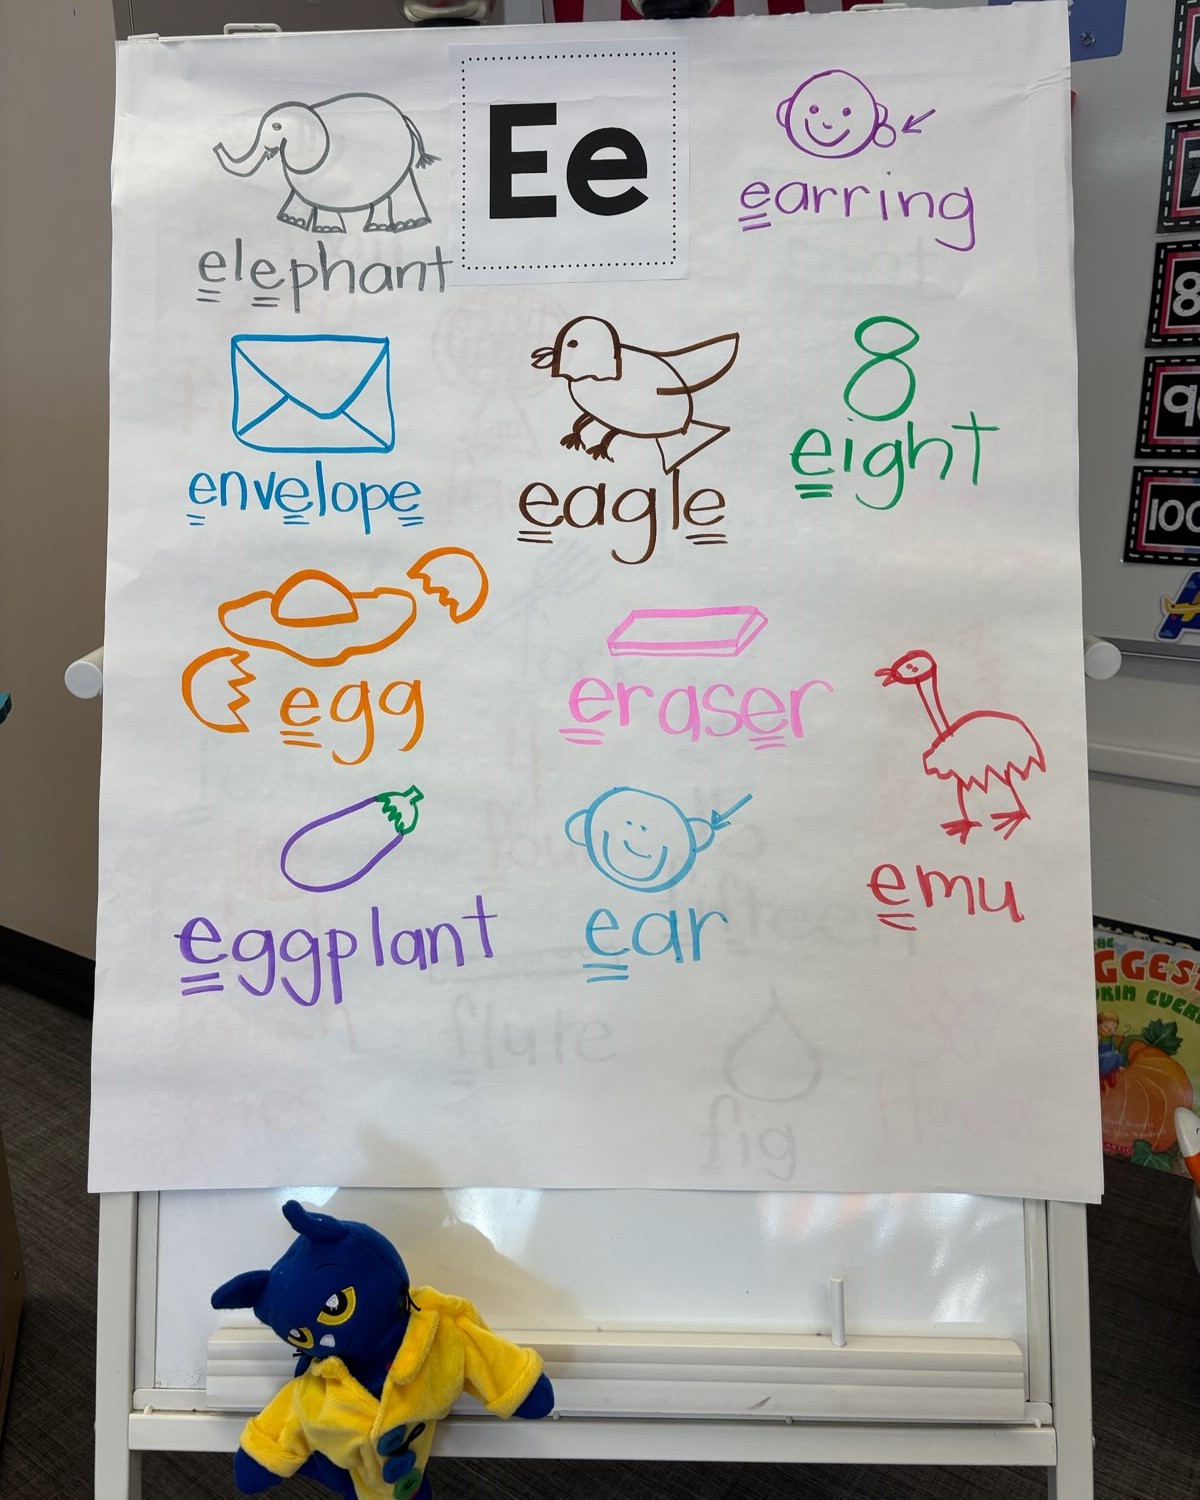 Ee
earring
elephant
8
envelope
eagle
eight
egg
eraser
emu
eggplant
ear
flute
fig
8
9
100
GGEST
KIN EVER